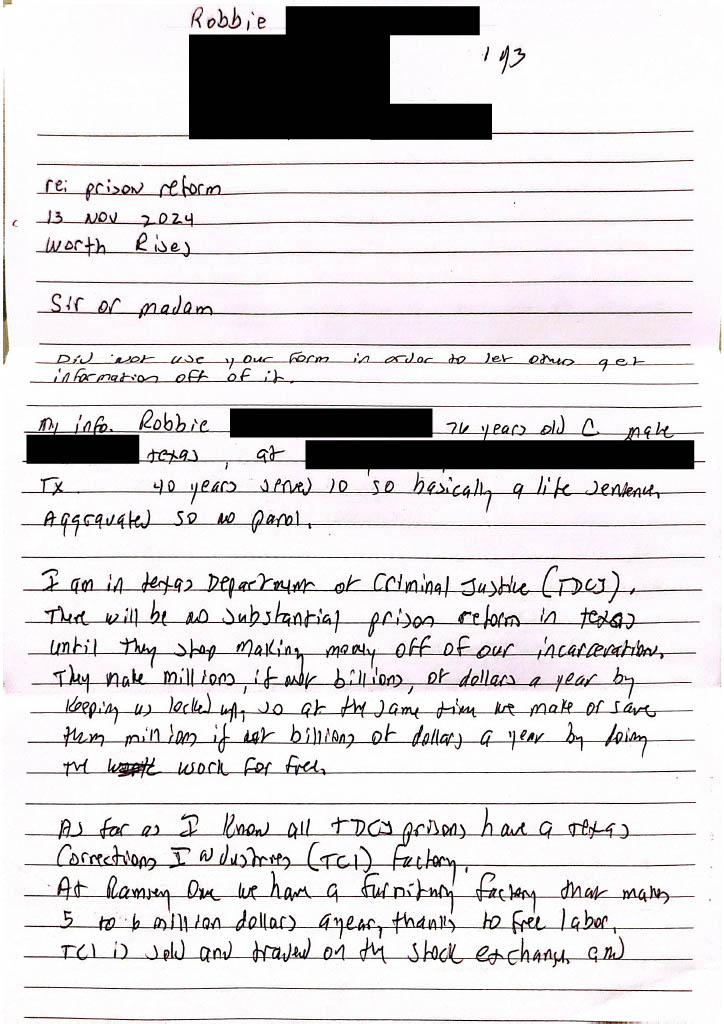 Robbie
1 of 3
re: prison reform
13 NOV 2024
Worth Rises
Sir or madam
Did not use your form in order to let others get
information off of it.
my info. Robbie 76 years old C male
texas, at
TX 40 years served 10 so basically a life sentence.
Aggravated so no parol.
I am in texas Department of Criminal Justice (TDCJ).
There will be no substantial prison reform in texas
until they stop making money off of our incarceration.
They make millions, if not billions, of dollars a year by
keeping us locked up, so at the same time we make or save
them millions if not billions of dollars a year by doing
the work for free.
As far as I know all TDCJ prisons have a texas
Corrections Industries (TCI) factory.
At Ramsey One we have a furniture factory that makes
5 to 6 million dollars a year, thanks to free labor.
TCI is sold and traded on the stock exchange and